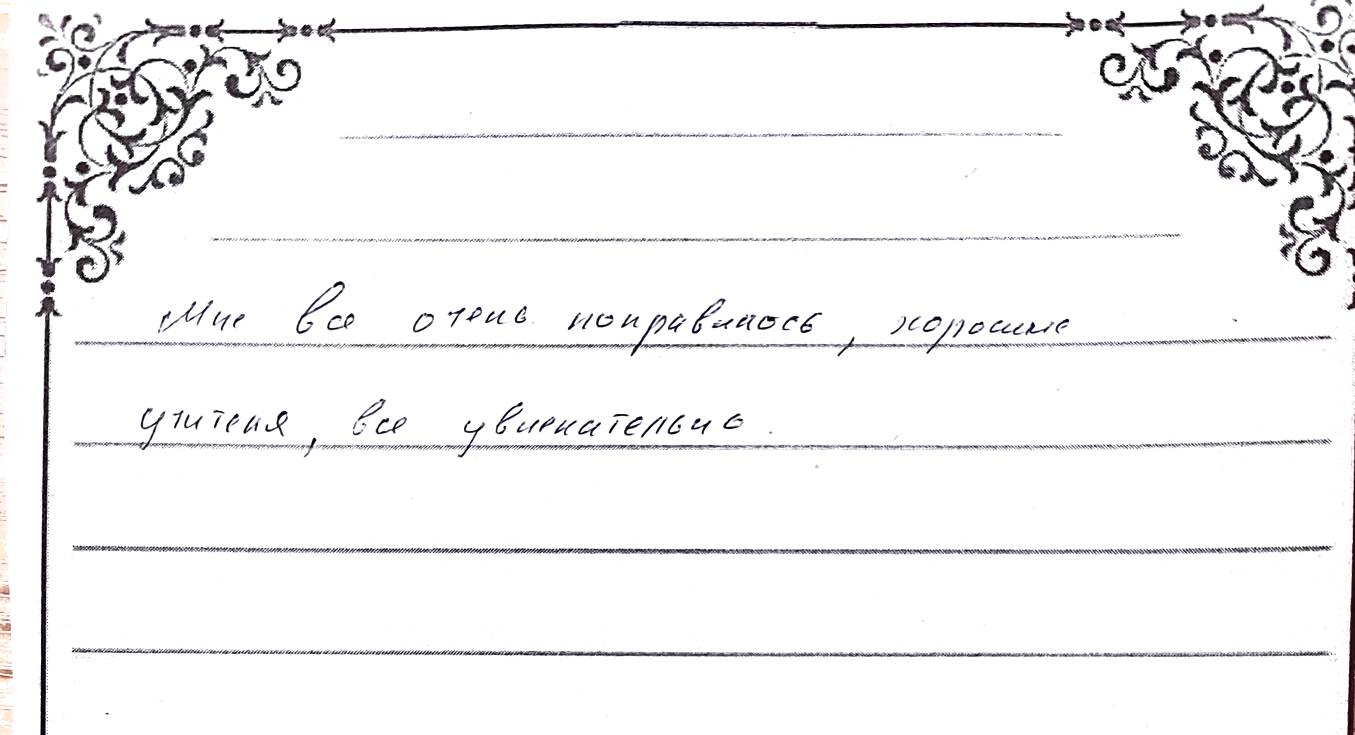 Мне все очень понравилось, хорошие
учителя, все увлекательно.